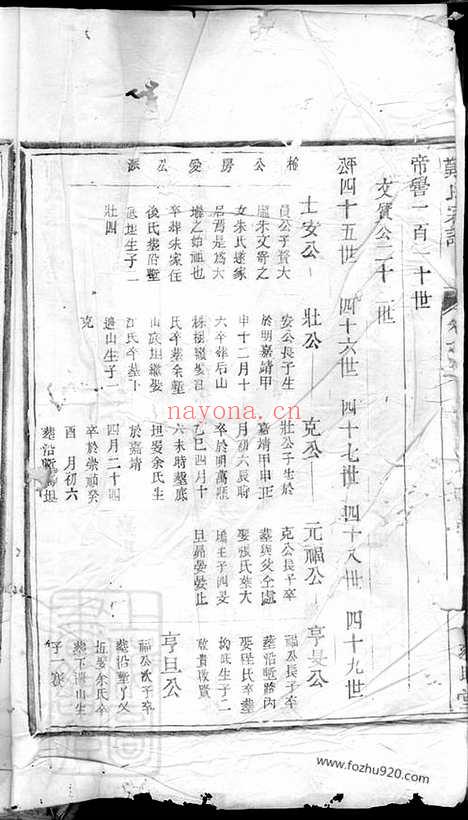 鄭氏宗譜
帝嚳一百二十世
文質公二十二世
四十五世 四十六世 四十七世 四十八世 四十九世
士安公
員公子贅大
朱文壽之
女朱氏遂家
居焉是為大
塘之始祖也
卒葬朱家住
後氏葬沿塹
底坦生子一
壯國
壯公
安公長子生
於明嘉靖甲
申十二月十
六卒葬后山
氏卒葬余塹
山底坦繼娶
江氏卒葬下
邊山生子一
克
克公
壯公子生於
嘉靖甲申正
月初六辰時
卒於明萬曆
乙巳四月十
六未時墓底
坦娶余氏生
於嘉靖
四月二十四
卒於崇禎癸
酉 月初六
葬沿塹塢坦
元福公
克公長子卒
葬與父仝處
娶張氏葬大
塘生子四旻
旦昂晏娶止
亨旻公
福公長子卒
葬沿塹路內
娶程氏卒葬
生子二
敬貴敬賢
亨旦公
福公次子卒
葬沿塹了父
坦娶余氏卒
葬下邊山生
子一褒
稀公房愛公派
nayona.cn
www.fozhu920.com